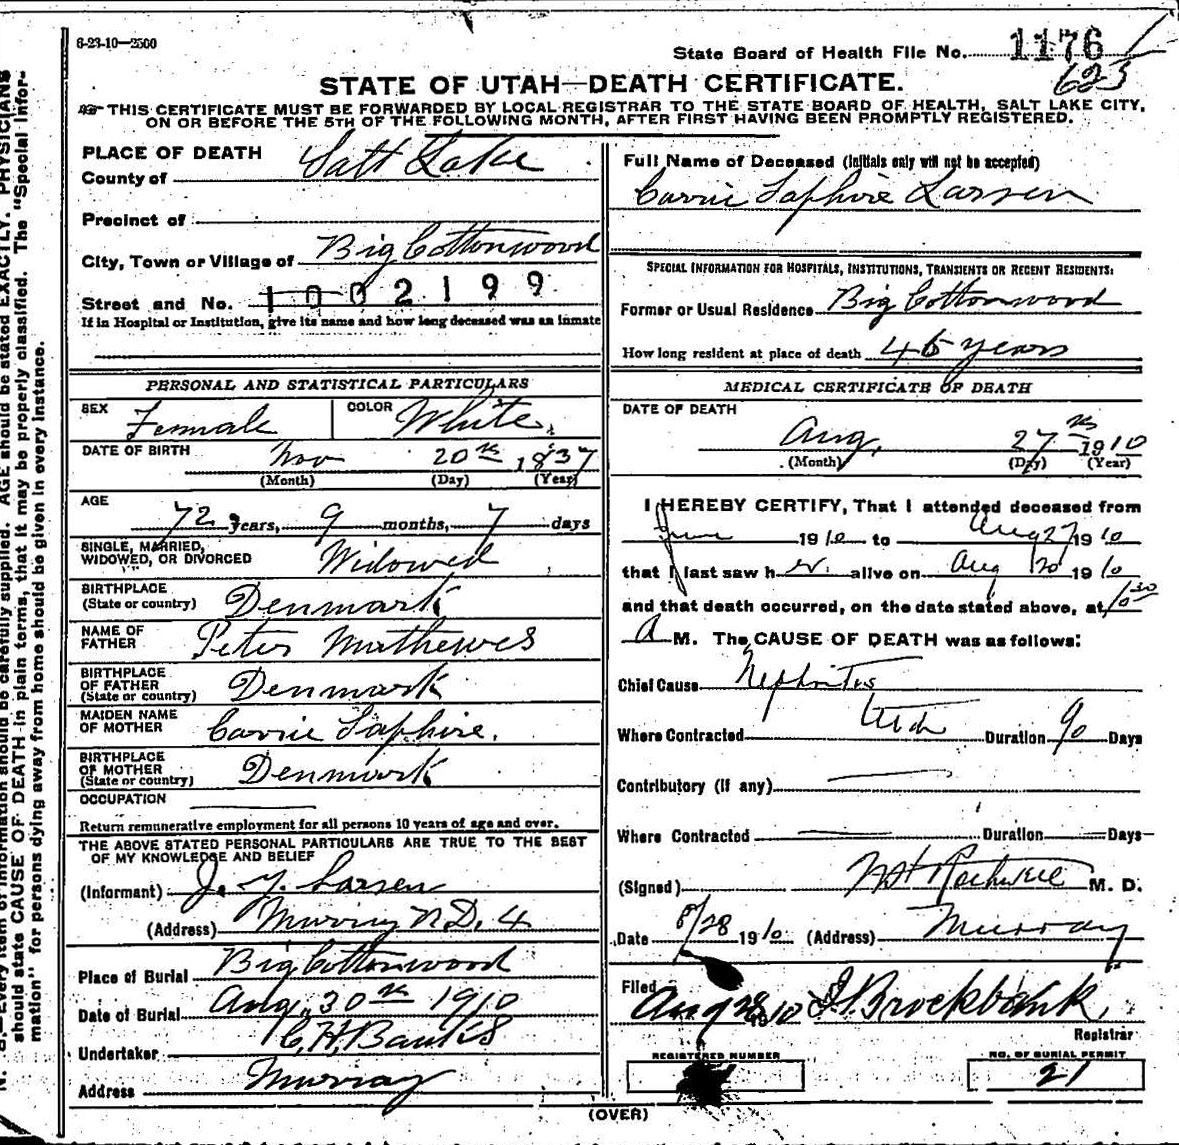 6-23-10—2500
State Board of Health File No. 1176
623
STATE OF UTAH—DEATH CERTIFICATE.
THIS CERTIFICATE MUST BE FORWARDED BY LOCAL REGISTRAR TO THE STATE BOARD OF HEALTH, SALT LAKE CITY,
ON OR BEFORE THE 5TH OF THE FOLLOWING MONTH, AFTER FIRST HAVING BEEN PROMPTLY REGISTERED.
PLACE OF DEATH
County of Salt Lake
Precinct of
City, Town or Village of Big Cottonwood
Street and No. 1002199
If in Hospital or Institution, give its name and how long deceased was an inmate
PERSONAL AND STATISTICAL PARTICULARS
SEX Female COLOR White
DATE OF BIRTH Nov 20th 1837
(Month) (Day) (Year)
AGE
72 years, 9 months, 7 days
SINGLE, MARRIED,
WIDOWED, OR DIVORCED Widowed
BIRTHPLACE
(State or country) Denmark
NAME OF
FATHER Peter Mathews
BIRTHPLACE
OF FATHER
(State or country) Denmark
MAIDEN NAME
OF MOTHER Carrie Saphire.
BIRTHPLACE
OF MOTHER
(State or country) Denmark
OCCUPATION
Return remunerative employment for all persons 10 years of age and over.
THE ABOVE STATED PERSONAL PARTICULARS ARE TRUE TO THE BEST
OF MY KNOWLEDGE AND BELIEF
(Informant) J. Y. Larsen
(Address) Murray R.D. 4
Place of Burial Big Cottonwood
Date of Burial Aug. 30th 1910
Undertaker C. H.
Address Murray
Full Name of Deceased (Initials only will not be accepted)
Carrie Saphire Larsen
SPECIAL INFORMATION FOR HOSPITALS, INSTITUTIONS, TRANSIENTS OR RECENT RESIDENTS:
Former or Usual Residence Big Cottonwood
How long resident at place of death years
MEDICAL CERTIFICATE OF DEATH
DATE OF DEATH
Aug. 27th 1910
(Month) (Day) (Year)
I HEREBY CERTIFY, That I attended deceased from
June 1910 to Aug 27 1910
that I last saw her alive on Aug 20 1910
and that death occurred, on the date stated above, at 10:30
A M. The CAUSE OF DEATH was as follows:
Chief Cause Nephritis
Where Contracted Utah Duration 90 Days
Contributory (if any)
Where Contracted Duration Days
(Signed) Rockwell M. D.
Date 8/28 1910 (Address) Murray
Filed
Aug 28 1910 Brockbank,
Registrar
REGISTERED NUMBER
NO. OF BURIAL PERMIT
21
(OVER)
N. B.—Every item of information should be carefully supplied. AGE should be stated EXACTLY. PHYSICIANS
should state CAUSE OF DEATH in plain terms, that it may be properly classified. The "Special Infor-
mation" for persons dying away from home should be given in every instance.